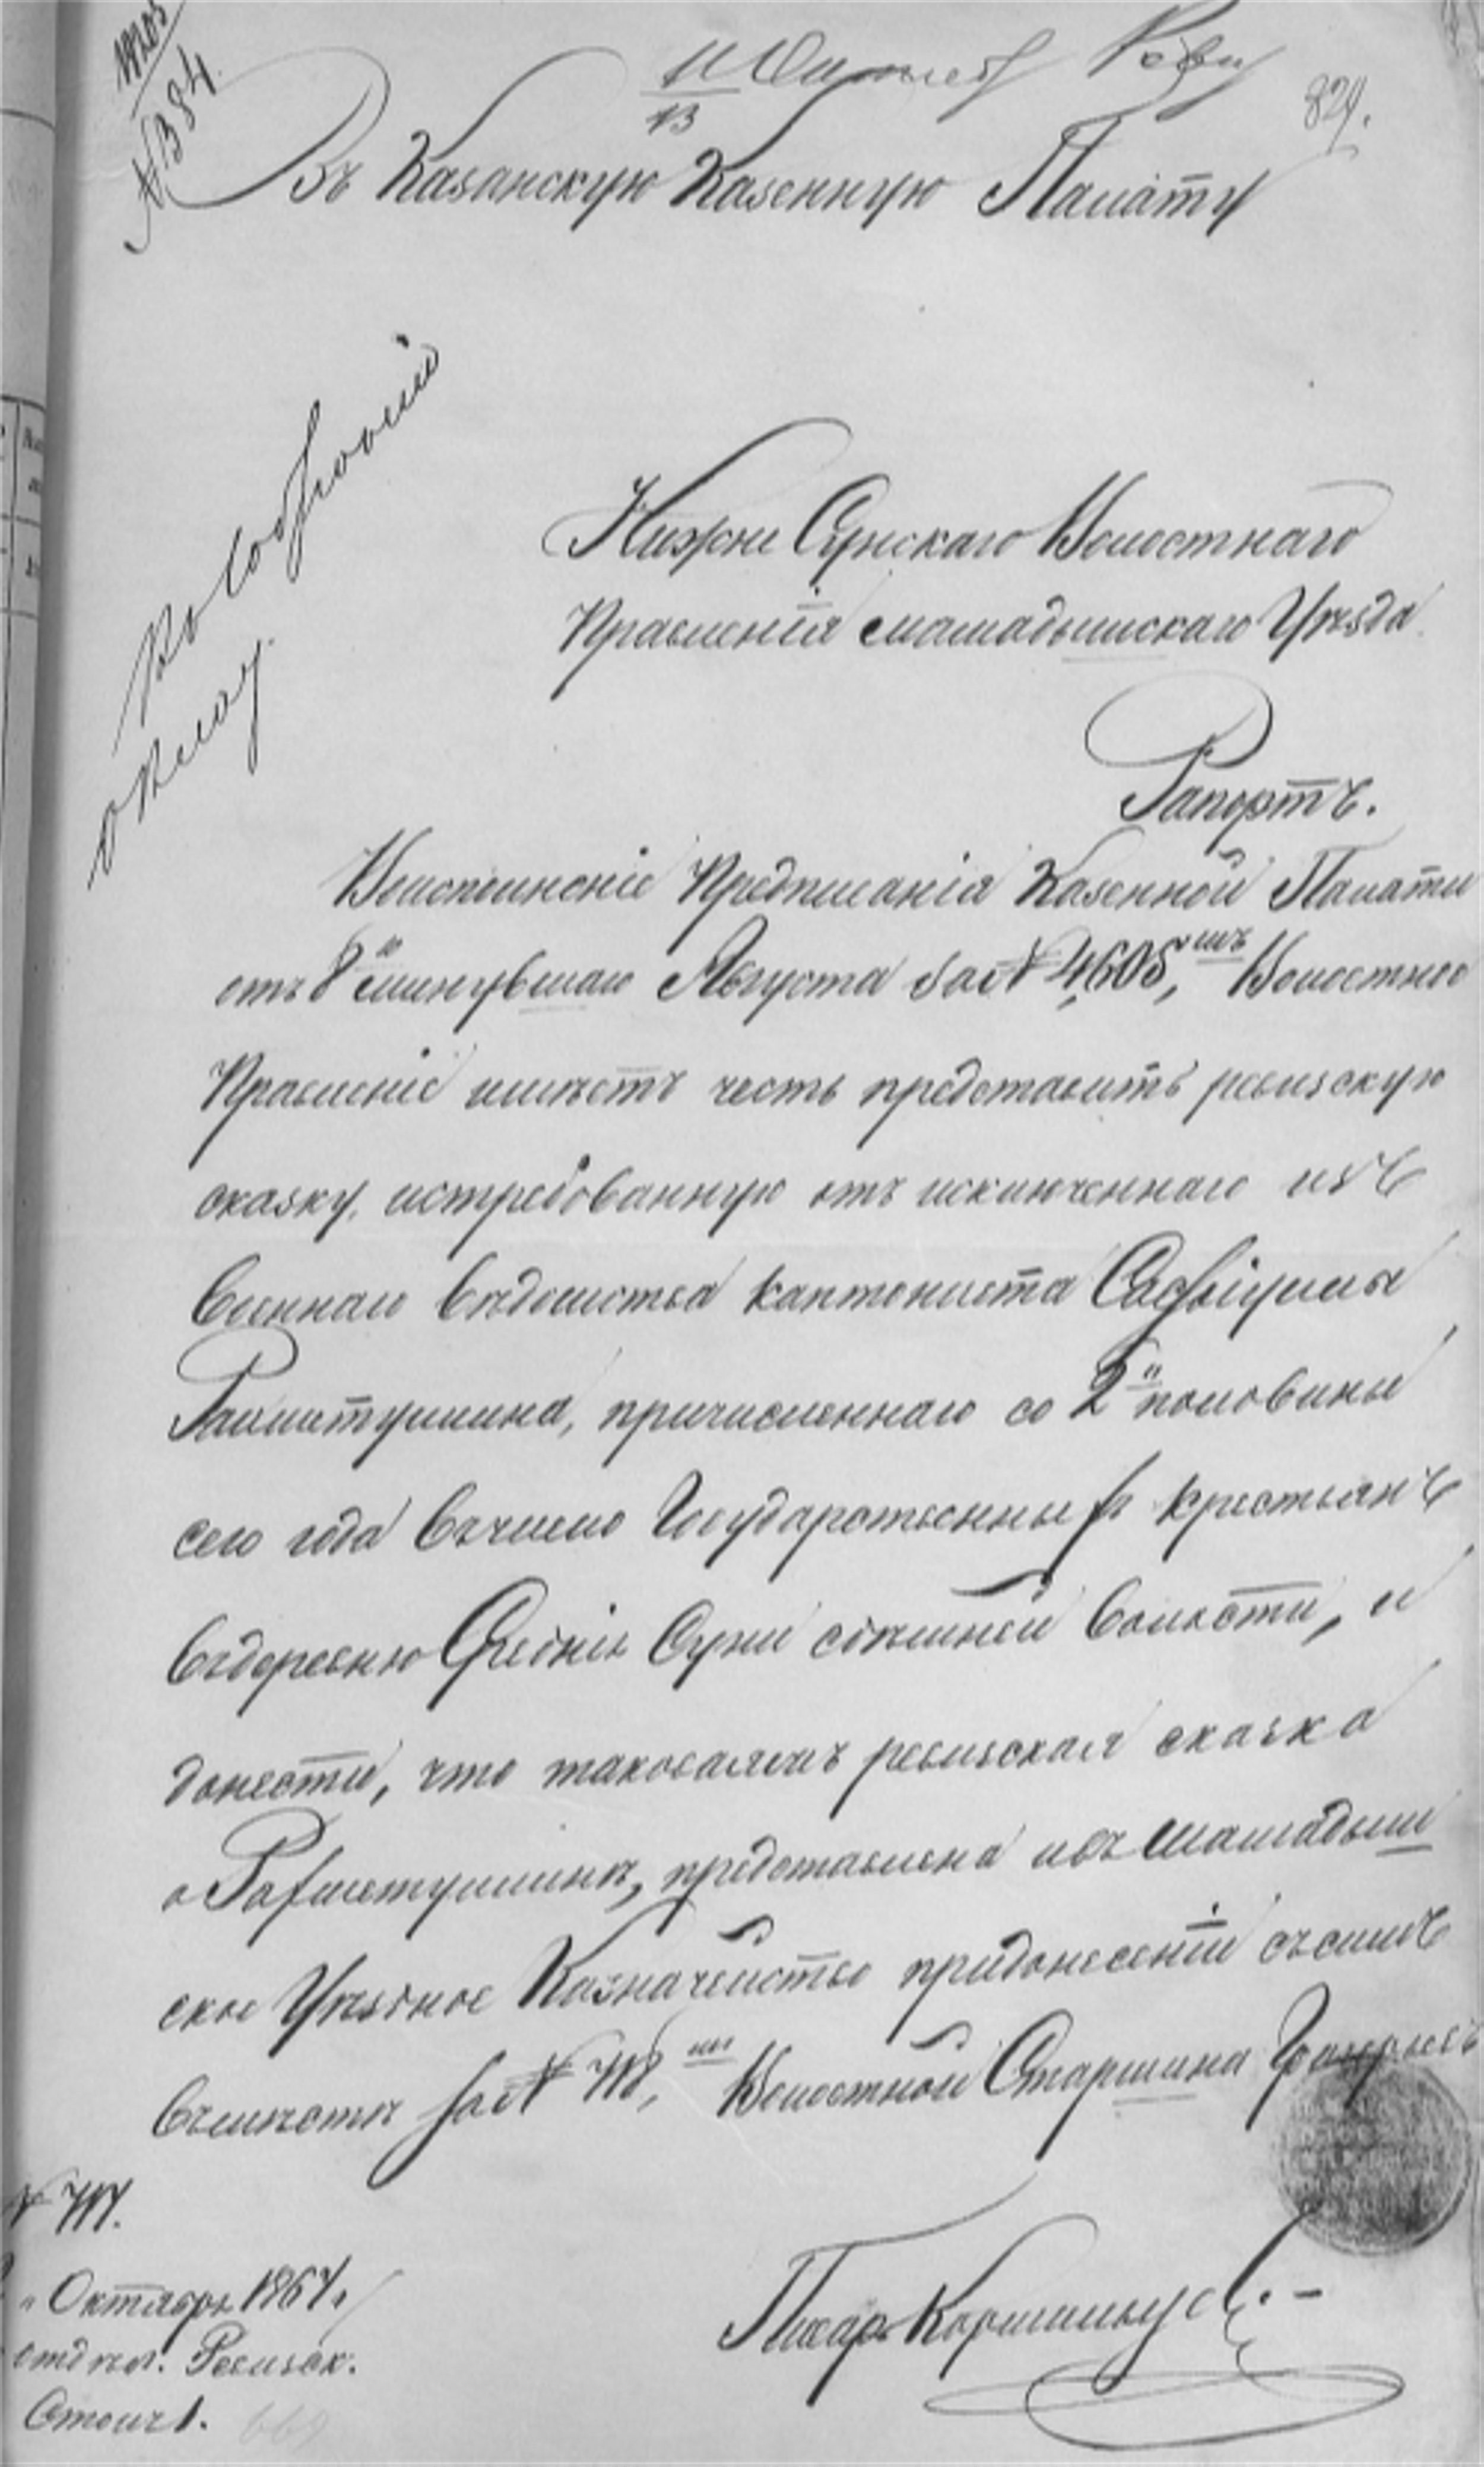 18205
№ 384
11/13 Октяб Реви
824.
Въ Казанскую Казенную Палату
Къ Соображенію
окладу
Нижне Сунскаго Волостнаго
Правленія Мамадышскаго Уѣзда
Рапортъ.
Воисполненіе Предписанія Казенной Палаты
отъ 8го минувшаго Августа за № 4605мъ, Волостное
Правленіе имѣетъ честь представить ревизскую
сказку, истребованную отъ исключеннаго изъ
Военнаго вѣдомства кантониста
причисленнаго со 2й половины
сего года въ число Государственныхъ крестьянъ
въ деревню Средніе Суни здѣшней волости, и
донести, что таковаяжъ ревизская сказка
о представлена и въ Мамадыш
ское Уѣздное Казначейство придонесеніи съсимъ
вмѣстѣ за № Волостной Старшина
№
Октября 1864.
отдѣл. Ревизск.
Столъ 1.
Писарь